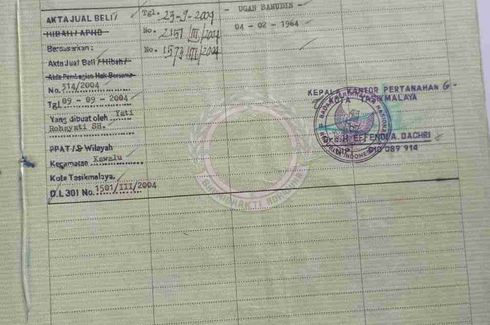 AKTA JUAL BELI/
HIBAH / APHB
Berdasarkan:
Akta Jual Beli / Hibah /
Akta Pembagian Hak Bersama
No. 314/2004
Tgl 09 - 09 - 2004
Yang dibuat oleh Yati
Rohayati SH.
PPAT / Wilayah
Kecamatan Kawalu
Kota Tasikmalaya.
D.I. 301 No. 1501/III/2004
Tgl. 23-9-2004
No. 2151/III/2004
No. 1573/III/2004
- UGAN BAHUDIN -
04 - 02 - 1964
KEPALA KANTOR PERTANAHAN
KOTA TASIKMALAYA
EFFENDI A. DACHRI
NIP. 010 089 914
BHUMIBHAKTI